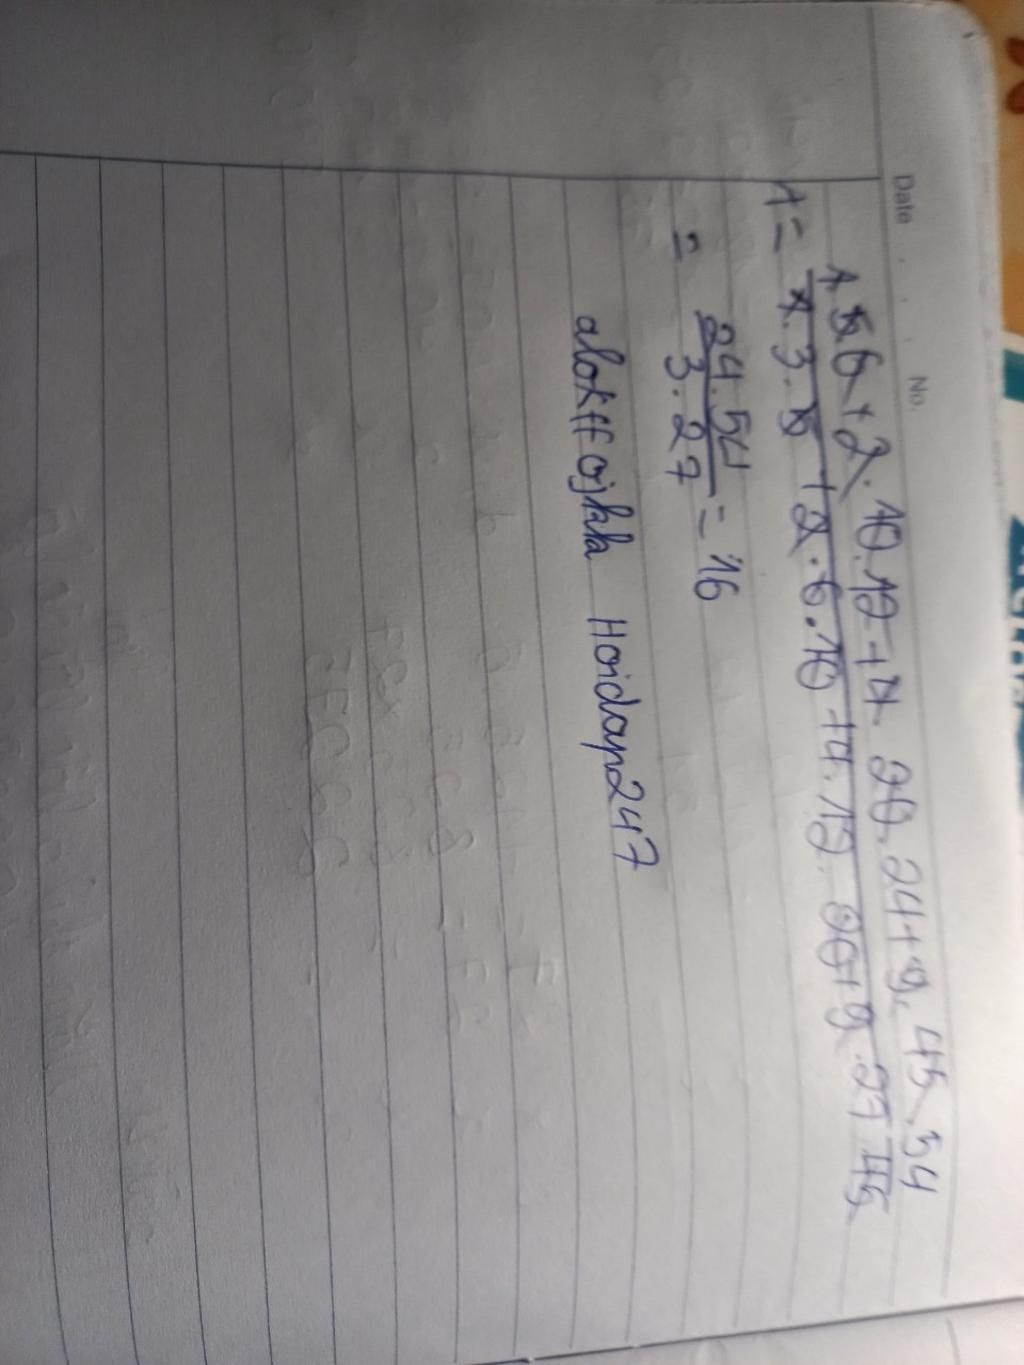 Date No.
1.5.6+2.10.12+4.20.24+9.45.54
A=
1.3.5+2.6.10+4.12.20+9.27.45
= 24.54 = 16
3.27
Hoidap247